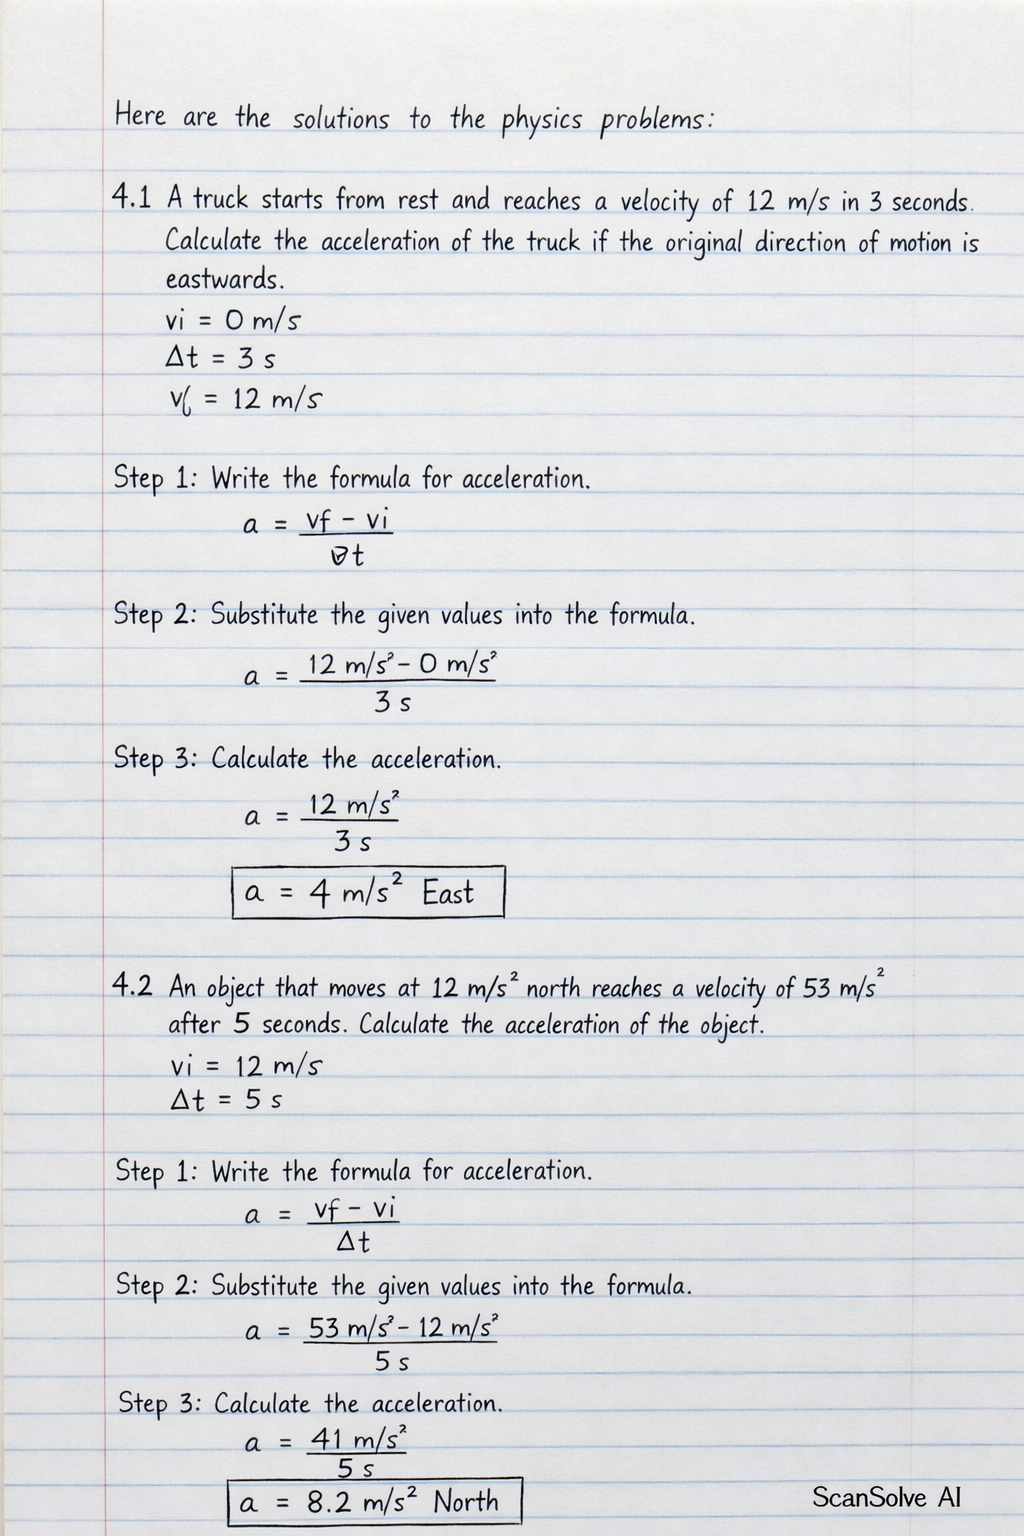 Here are the solutions to the physics problems:
4.1 A truck starts from rest and reaches a velocity of 12 m/s in 3 seconds.
Calculate the acceleration of the truck if the original direction of motion is
eastwards.
vi = 0 m/s
Δt = 3 s
vf = 12 m/s
Step 1: Write the formula for acceleration.
a = vf - vi
t
Step 2: Substitute the given values into the formula.
a = 12 m/s² - 0 m/s²
3 s
Step 3: Calculate the acceleration.
a = 12 m/s²
3 s
a = 4 m/s² East
4.2 An object that moves at 12 m/s² north reaches a velocity of 53 m/s²
after 5 seconds. Calculate the acceleration of the object.
vi = 12 m/s
Δt = 5 s
Step 1: Write the formula for acceleration.
a = vf - vi
Δt
Step 2: Substitute the given values into the formula.
a = 53 m/s² - 12 m/s²
5 s
Step 3: Calculate the acceleration.
a = 41 m/s²
5 s
a = 8.2 m/s² North
ScanSolve AI